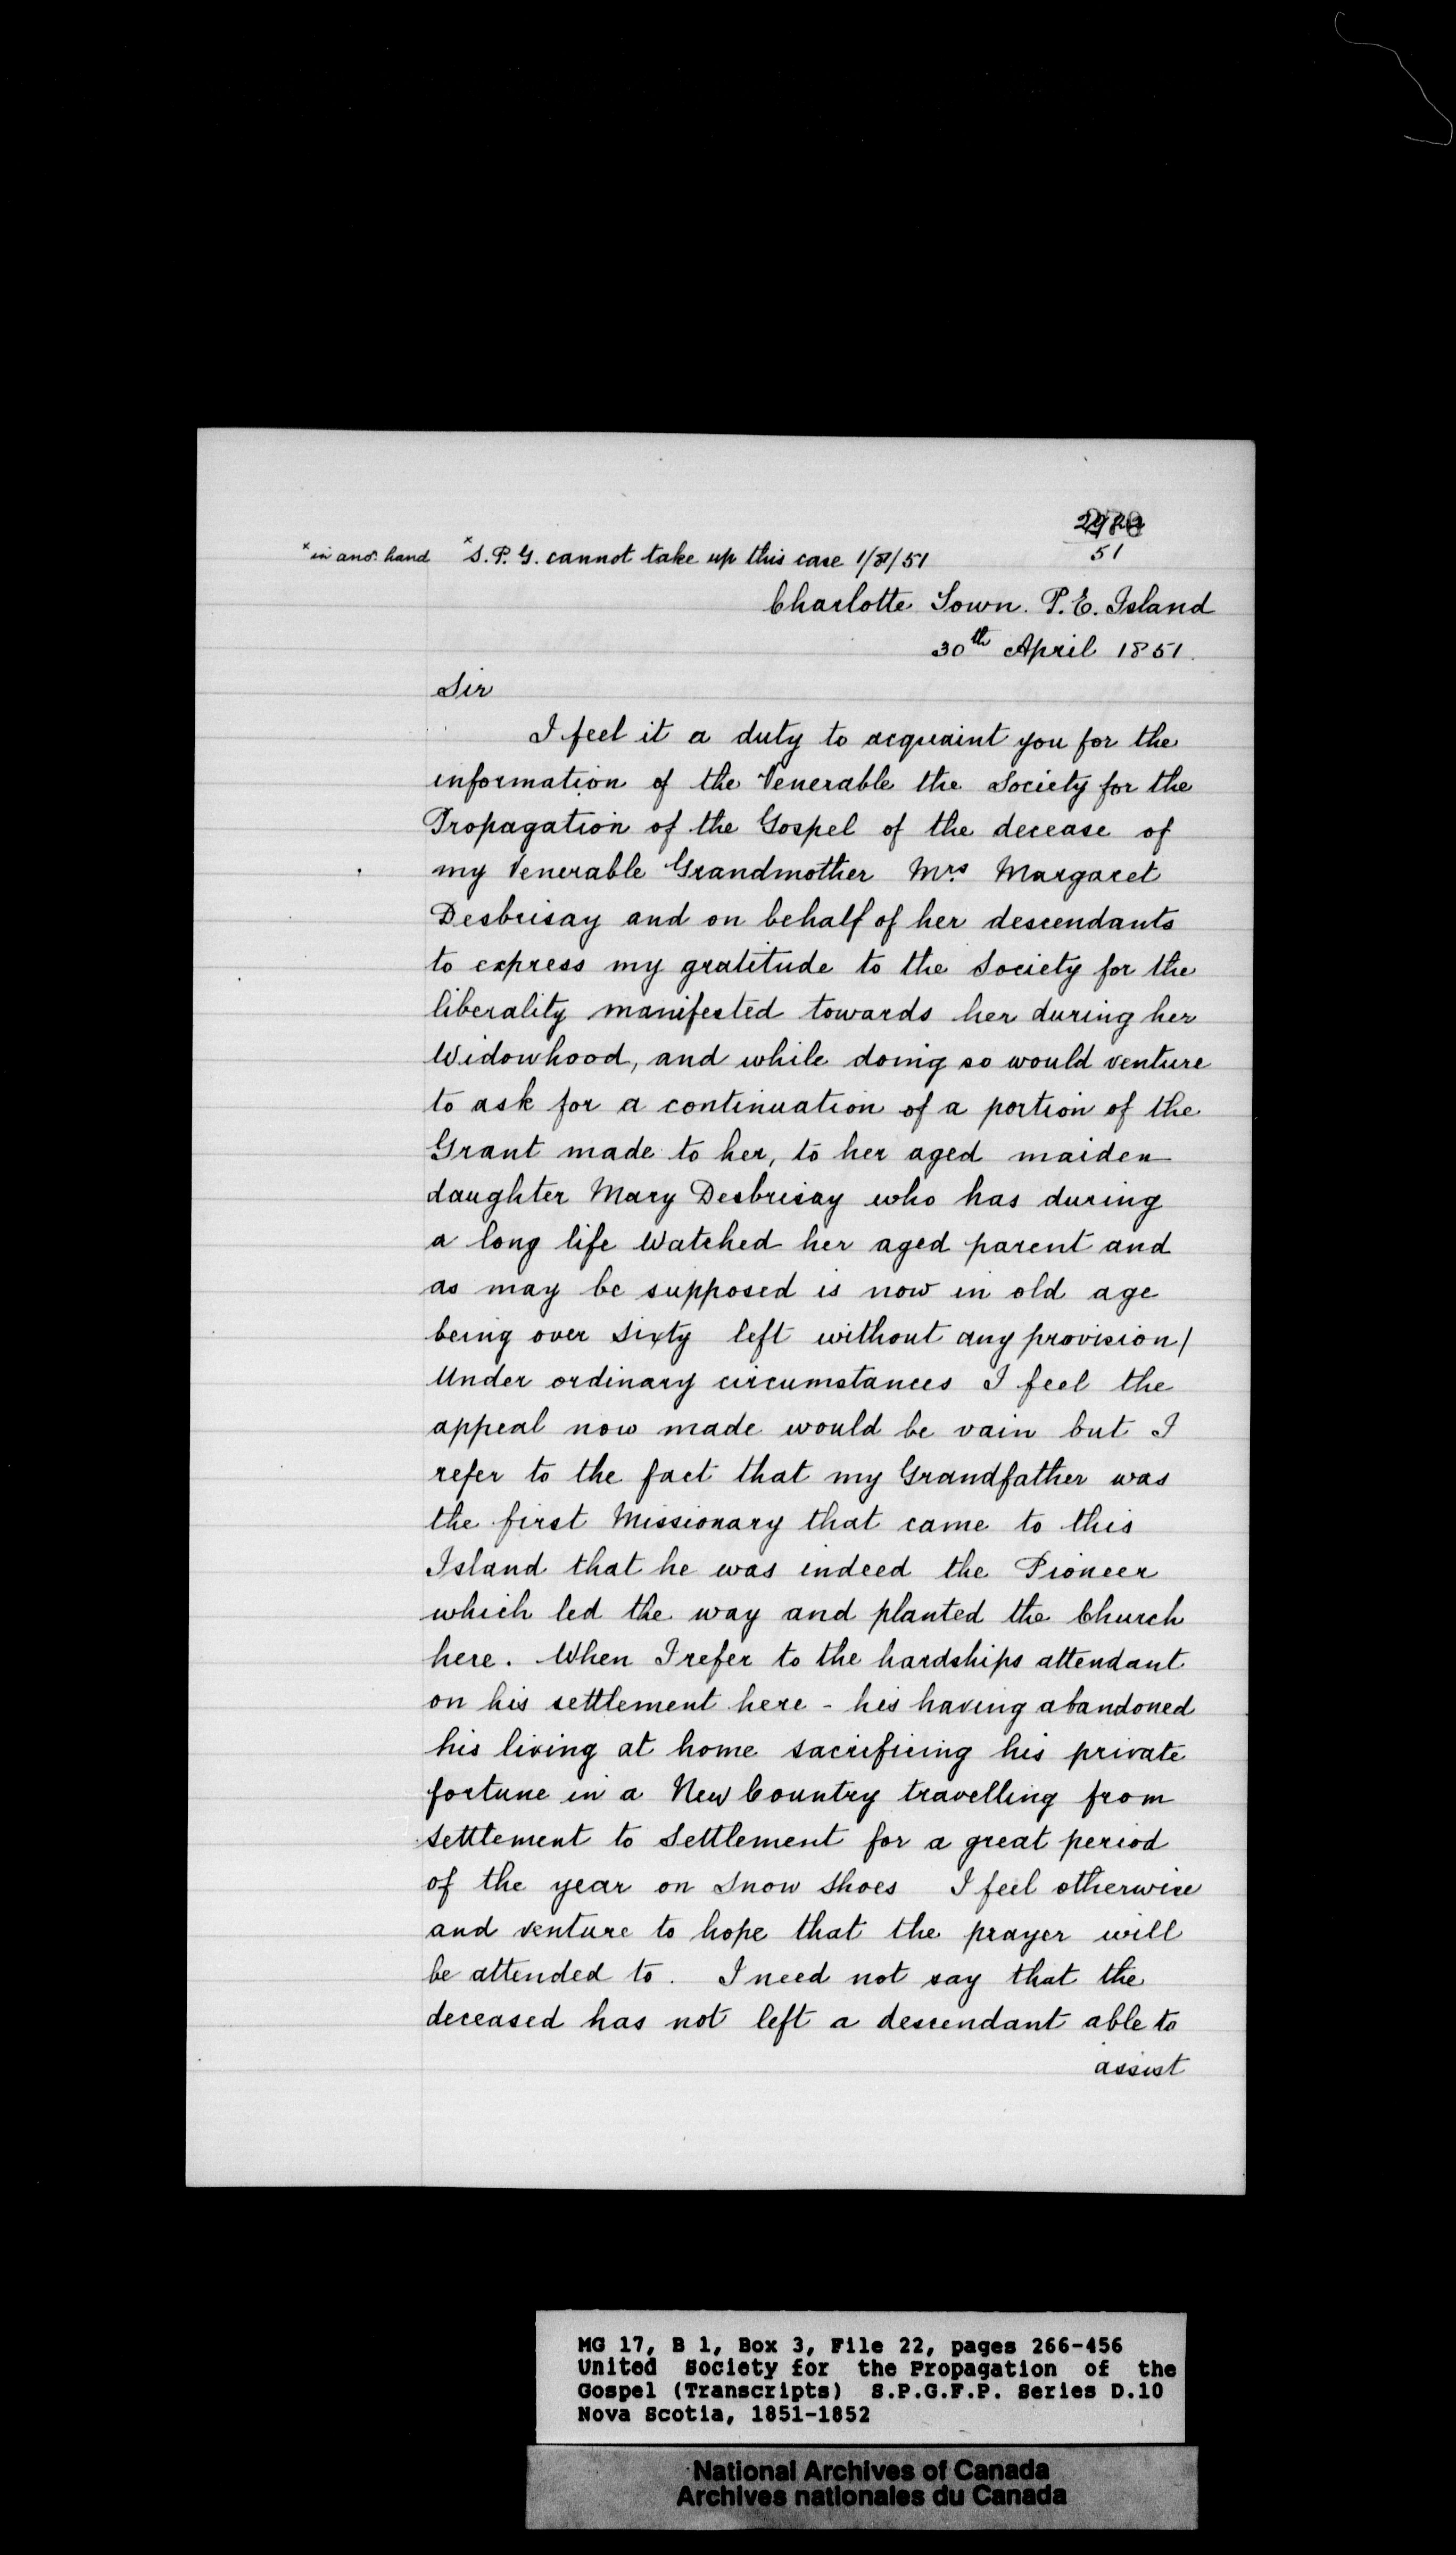 51
*in anor. hand *S.P.G. cannot take up this case 1/8/51
Charlotte Town. P.E. Island
30th April 1851.
Sir
I feel it a duty to acquaint you for the
information of the Venerable the Society for the
Propagation of the Gospel of the decease of
my Venerable Grandmother Mrs. Margaret
Desbrisay and on behalf of her descendants
to express my gratitude to the Society for the
liberality manifested towards her during her
Widowhood, and while doing so would venture
to ask for a continuation of a portion of the
Grant made to her, to her aged maiden
daughter Mary Desbrisay who has during
a long life Watched her aged parent and
as may be supposed is now in old age
being over sixty left without any provision/
Under ordinary circumstances I feel the
appeal now made would be vain but I
refer to the fact that my Grandfather was
the first Missionary that came to this
Island that he was indeed the Pioneer
which led the way and planted the Church
here. When I refer to the hardships attendant
on his settlement here - his having abandoned
his living at home sacrificing his private
fortune in a New Country travelling from
settlement to settlement for a great period
of the year on Snow Shoes I feel otherwise
and venture to hope that the prayer will
be attended to. I need not say that the
deceased has not left a descendant able to
assist
MG 17, B 1, Box 3, File 22, pages 266-456
United Society for the Propagation of the
Gospel (Transcripts) S.P.G.F.P. Series D.10
Nova Scotia, 1851-1852
National Archives of Canada
Archives nationales du Canada